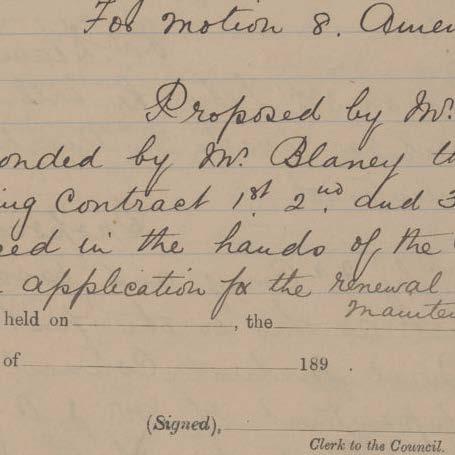 For motion 8. Amen
Proposed by Mr.
onded by Mr. Blaney t
ing Contract 1st 2nd. and 3
ced in the hands of the
application for the renewal
mainten
held on , the
of 189 .
(Signed),
Clerk to the Council.